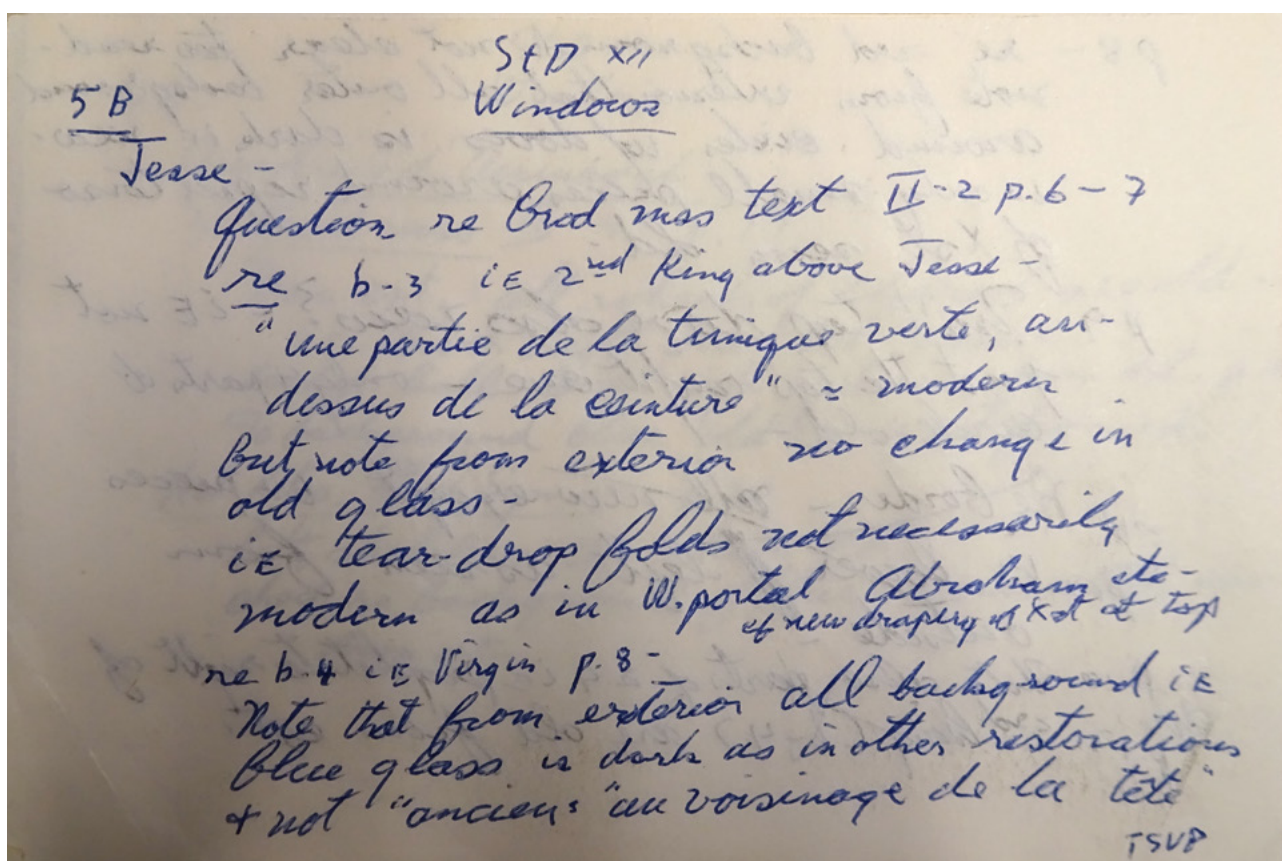 StD XII
5 B Windows
Jesse -
Question re Grod mss text II-2 p. 6 - 7
re b-3 iE 2nd King above Jesse -
"une partie de la tunique verte, au-
dessus de la ceinture" = modern
But note from exterior no change in
old glass -
iE tear-drop folds not necessarily
modern as in W. portal Abraham etc -
cf new drapery of Xst at top
re b.4 iE Virgin p. 8 -
Note that from exterior all background iE
blue glass is dark as in other restorations
+ not "ancien" "au voisinage de la tête"
TSVP